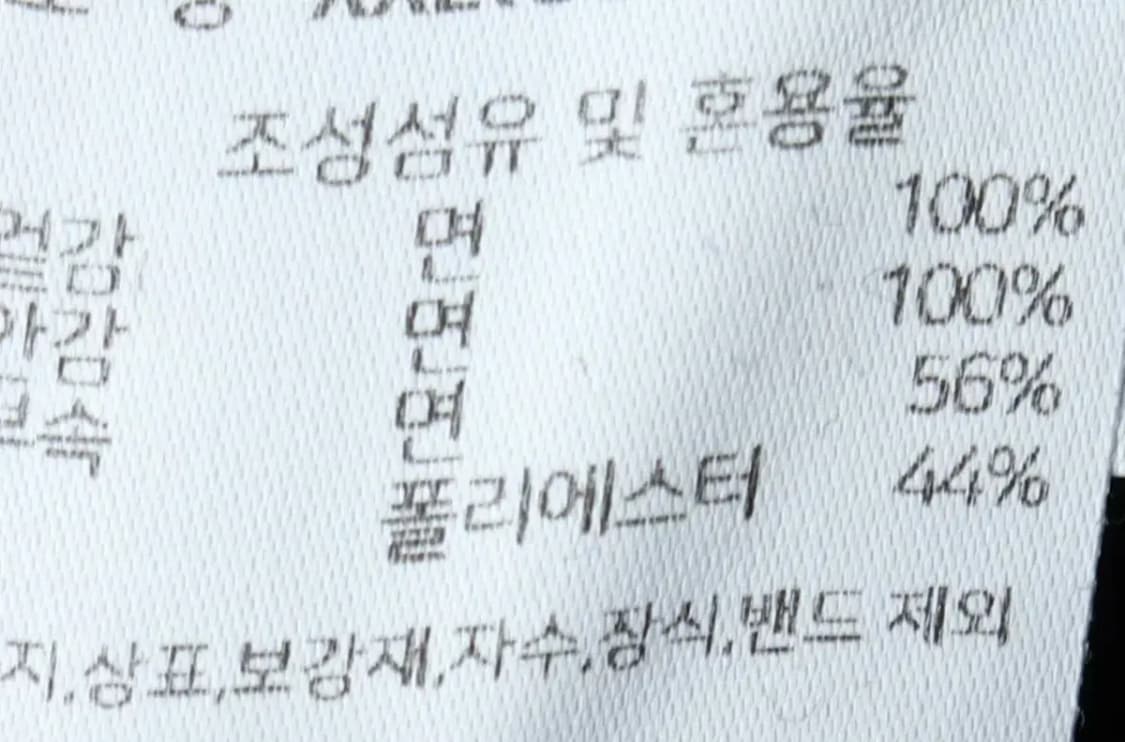 조성섬유 및 혼용율
겉감 면 100%
안감 면 100%
면 56%
폴리에스터 44%
지,상표,보강재,자수,장식,밴드 제외